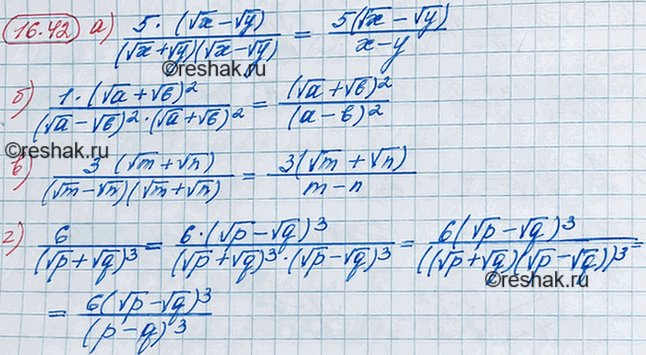 16.42 а) 5·(√x−√y)/(√x+√y)(√x−√y) = 5(√x−√y)/x−y
©reshak.ru
б) 1·(√a+√b)²/(√a−√b)²·(√a+√b)² = (√a+√b)²/(a−b)²
©reshak.ru
в) 3(√m+√n)/(√m−√n)(√m+√n) = 3(√m+√n)/m−n
г) 6/(√p+√q)³ = 6·(√p−√q)³/(√p+√q)³·(√p−√q)³ = 6(√p−√q)³/((√p+√q)(√p−√q))³ =
©reshak.ru
= 6(√p−√q)³/(p−q)³